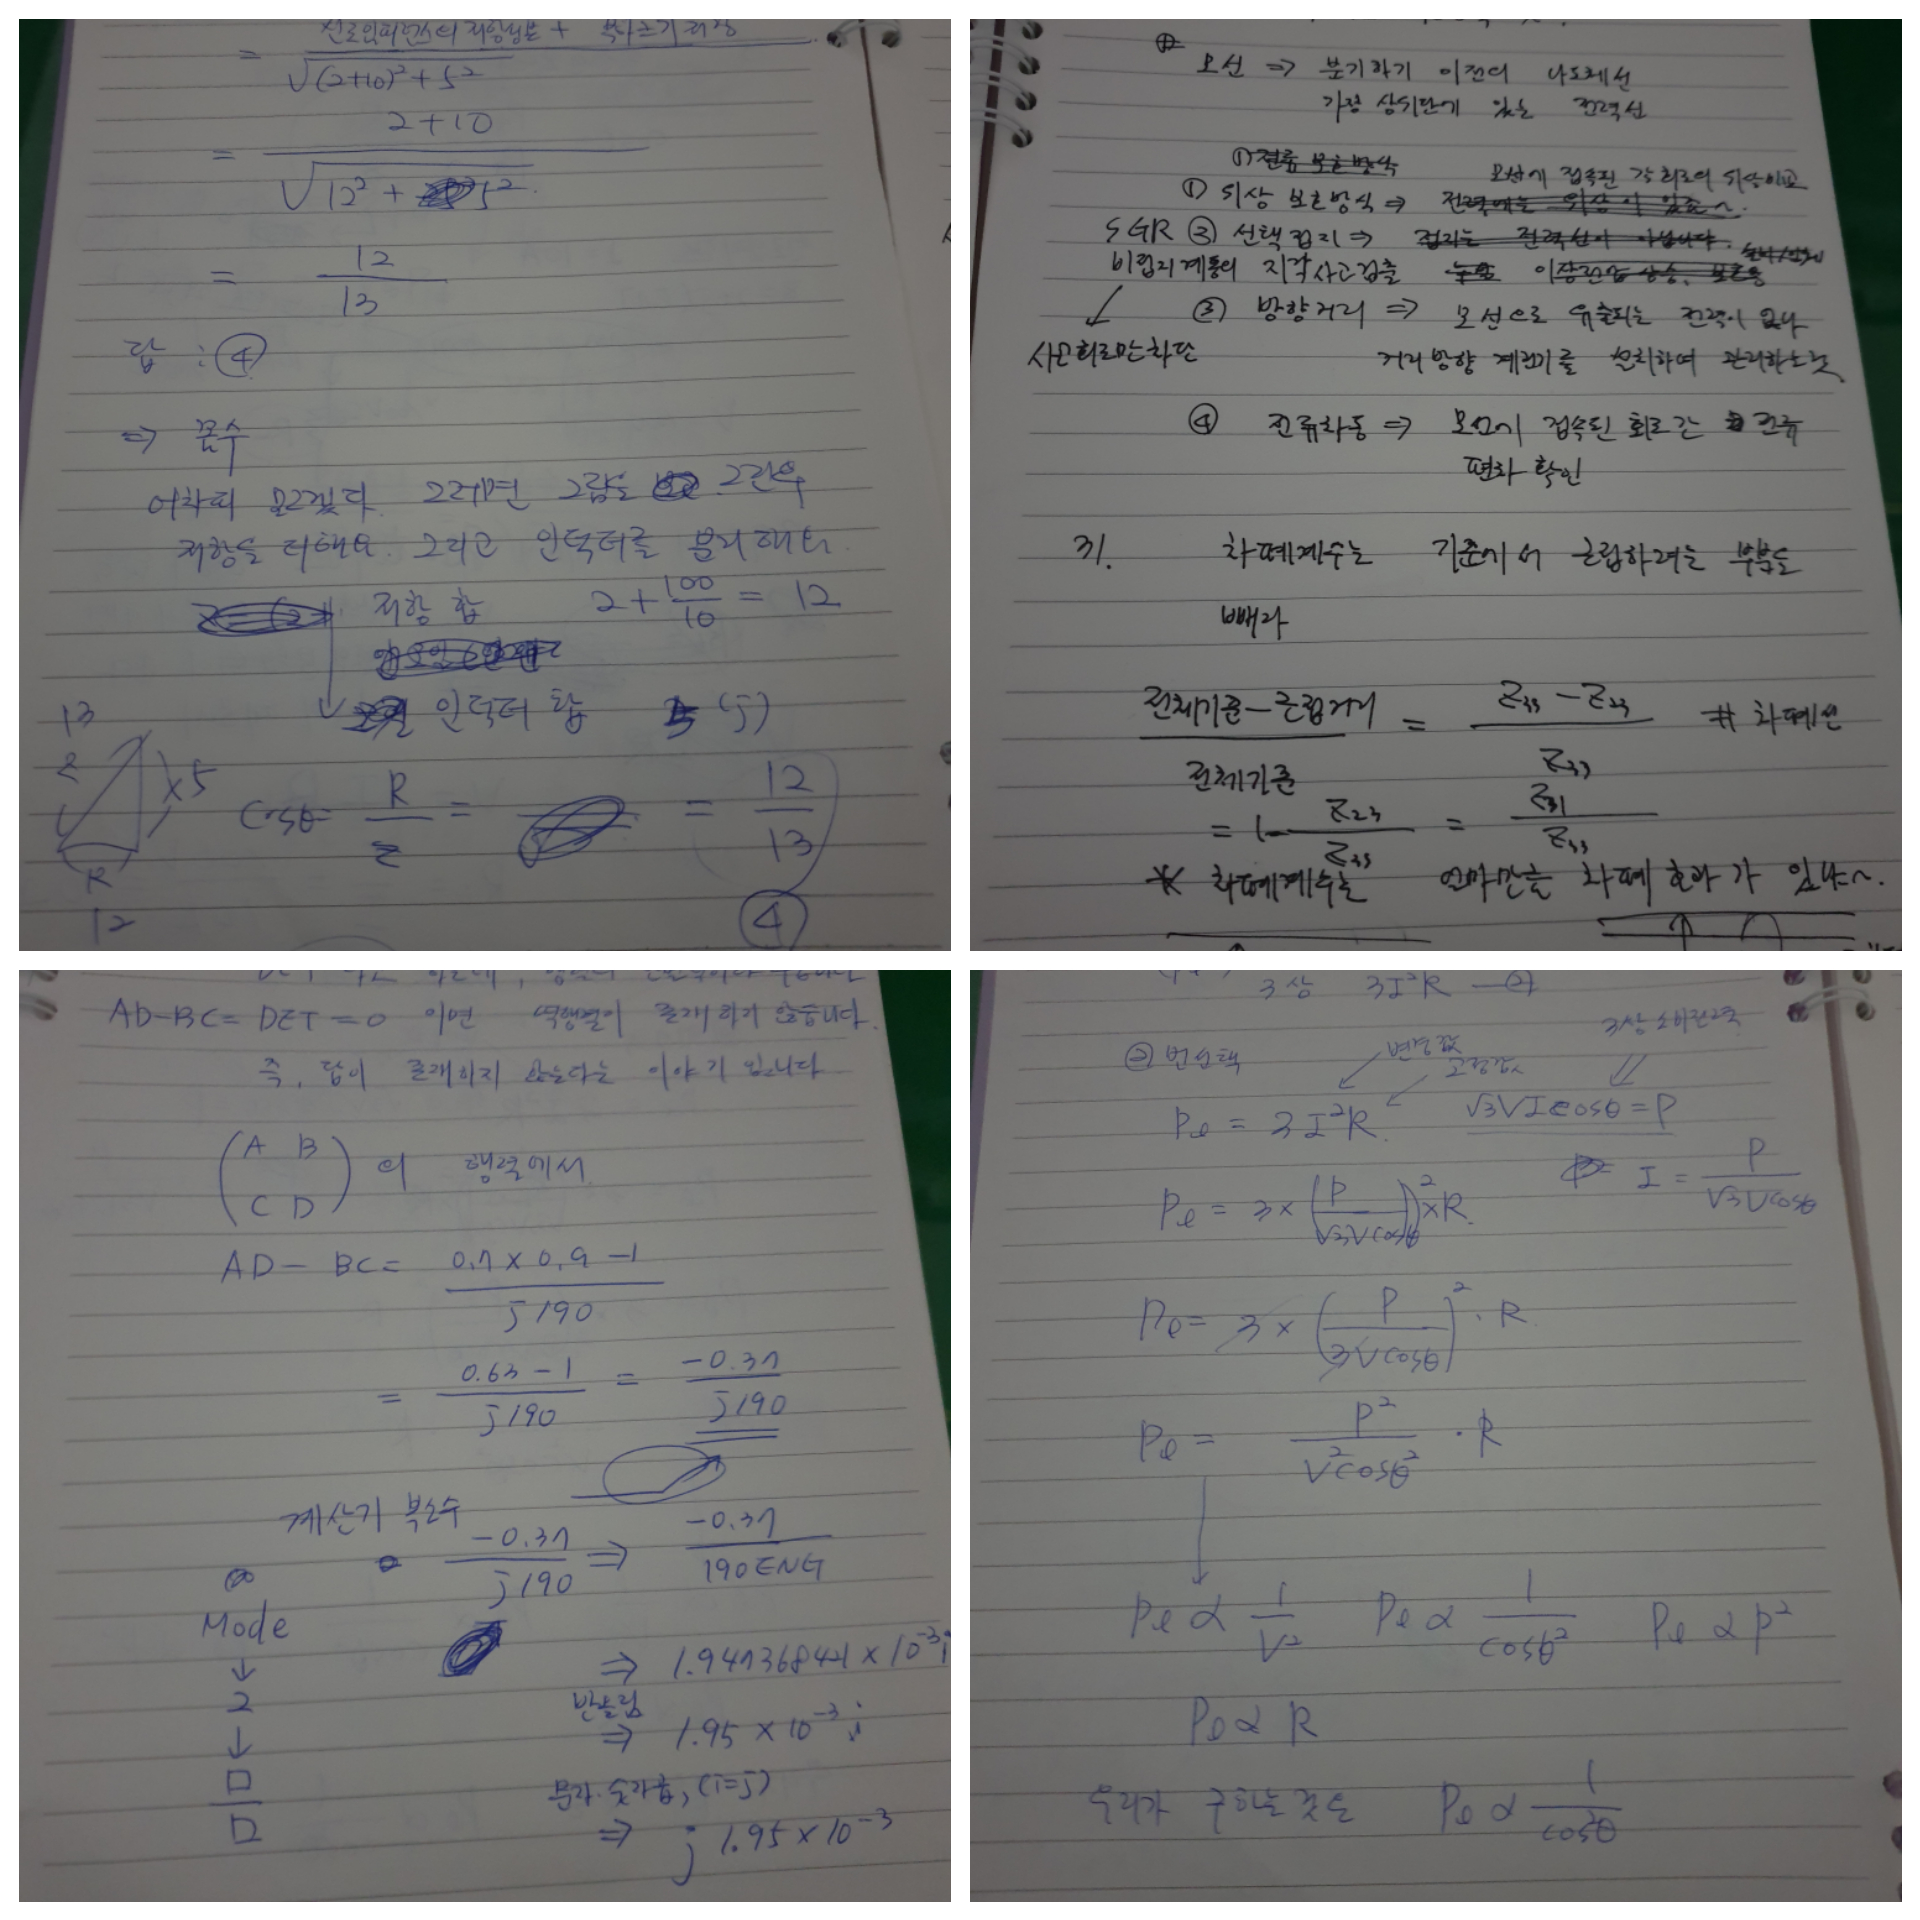 = 선로임피던스의 저항성분 +
√(2+10)² + 5²
= 2+10
√12² + 5²
= 12
13
답 : ④
⇒ 꼼수
어차피 모르겠다. 그러면 그람도 그런후
저항을 더해요. 그리고 인덕터를 분리해요.
저항 합 2 + 100/10 = 12
인덕터 합 5 (j)
13
Z
X 5
R
12
cosθ = R/Z = = 12/13
④
모선 ⇒ 분기하기 이전의 나도체선
가장 상위단에 있는 전력선
①전류 보호방식
① 위상 보호방식 ⇒ 모선에 접속된 각 회로의 위상비교
SGR ② 선택접지 ⇒
비접지계통의 지락사고검출
사고회로만차단
③ 방향거리 ⇒ 모선으로 유출되는 전력이 없다
거리방향 계전기를 설치하여 관리하는것
④ 전류차동 ⇒ 모선에 접속된 회로간 전류
편차 확인
31. 차폐계수는 기준에서 근접하려는 부분을
빼라
전체기준-근접거리 = Z33 - Z23 # 차폐선
전체기준 Z33
= 1- Z23/Z33 = Z31/Z33
* 차폐계수는 얼마만큼 차폐 효과가 있냐~.
AD-BC = DET = 0 이면 역행렬이 존재하지 않습니다.
즉, 답이 존재하지 않는다는 이야기 입니다
(A B
C D) 의 행렬에서
AD - BC = 0.7 × 0.9 - 1
j190
= 0.63 - 1 / j190 = -0.37 / j190
계산기 복소수
-0.37 / j190 ⇒ -0.37 / 190 ENG
Mode
↓
2
↓
□
□
⇒ 1.947368421 × 10⁻³i
반올림
⇒ 1.95 × 10⁻³ i
문자·숫자합, (i=j)
⇒ j 1.95 × 10⁻³
3상 3I²R - ②
② 번선택
변경값
고정값
3상 소비전력
Pℓ = 3I²R
√3VIcosθ = P
I = P / √3Vcosθ
Pℓ = 3 × (P / √3Vcosθ)² × R
Pℓ = 3 × (P / 3Vcosθ)² · R
Pℓ = P² / V²cosθ² · R
Pℓ ∝ 1/V² Pℓ ∝ 1/cosθ² Pℓ ∝ P²
Pℓ ∝ R
우리가 구하는것은 Pℓ ∝ 1/cos²θ